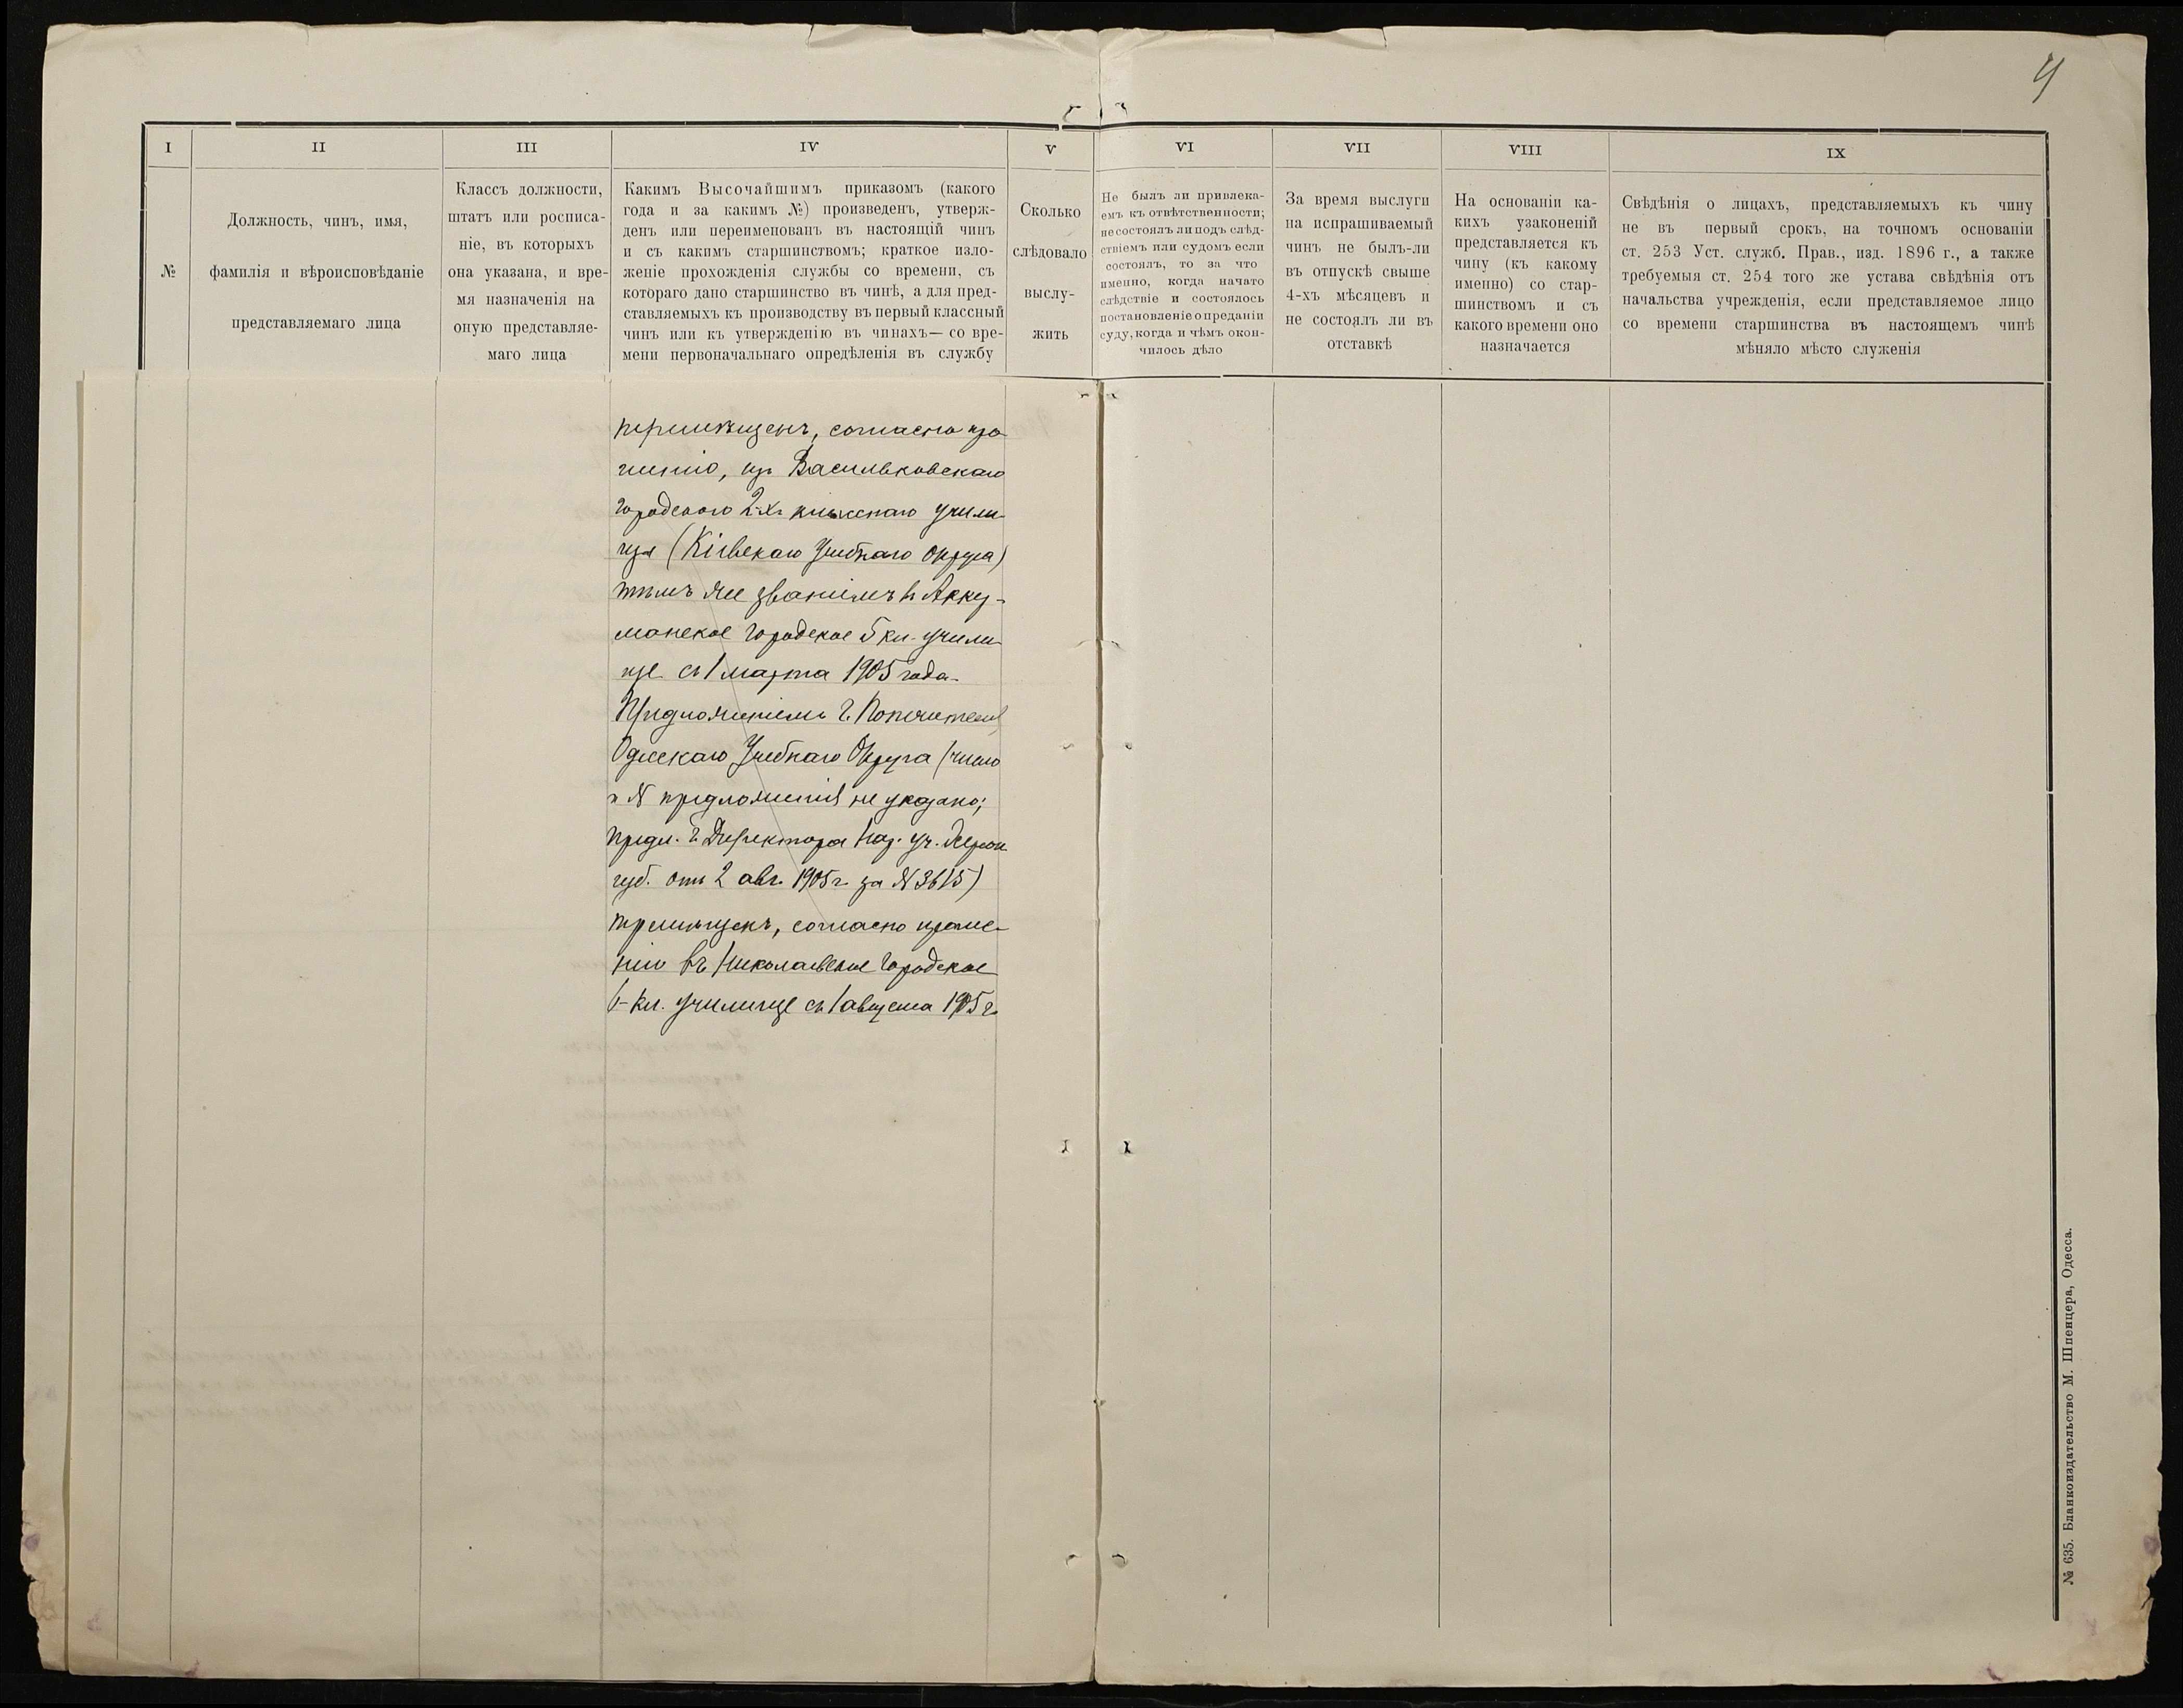 4
I
II
III
IV
V
VI
VII
VIII
IX
№
Должность, чинъ, имя,
фамилія и вѣроисповѣданіе
представляемаго лица
Классъ должности,
штатъ или росписа-
ніе, въ которыхъ
она указана, и вре-
мя назначенія на
оную представляе-
маго лица
Какимъ Высочайшимъ приказомъ (какого
года и за какимъ №) произведенъ, утверж-
денъ или переименованъ въ настоящій чинъ
и съ какимъ старшинствомъ; краткое изло-
женіе прохожденія службы со времени, съ
котораго дано старшинство въ чинѣ, а для пред-
ставляемыхъ къ производству въ первый классный
чинъ или къ утвержденію въ чинахъ— со вре-
мени первоначальнаго опредѣленія въ службу
Сколько
слѣдовало
выслу-
жить
Не былъ ли привлека-
емъ къ отвѣтственности;
не состоялъ ли подъ слѣд-
ствіемъ или судомъ если
состоялъ, то за что
именно, когда начато
слѣдствіе и состоялось
постановленіе о преданіи
суду, когда и чѣмъ окон-
чилось дѣло
За время выслуги
на испрашиваемый
чинъ не былъ-ли
въ отпускѣ свыше
4-хъ мѣсяцевъ и
не состоялъ ли въ
отставкѣ
На основаніи ка-
кихъ узаконеній
представляется къ
чину (къ какому
именно) со стар-
шинствомъ и съ
какого времени оно
назначается
Свѣдѣнія о лицахъ, представляемыхъ къ чину
не въ первый срокъ, на точномъ основаніи
ст. 253 Уст. служб. Прав., изд. 1896 г., а также
требуемыя ст. 254 того же устава свѣдѣнія отъ
начальства учрежденія, если представляемое лицо
со времени старшинства въ настоящемъ чинѣ
мѣняло мѣсто служенія
перемѣщенъ, согласно про
шенію, изъ Васильковскаго
городского 2-хъ класснаго учили-
ща (Кіевскаго Учебнаго Округа)
тѣмъ же званіемъ въ Аккер-
манское городское 5 кл. учили-
ще съ 1 марта 1905 года.
Предложеніемъ Г. Попечителя
Одесскаго Учебнаго Округа (число
и № предложенія не указано;
предл. г. Директора Нар. уч. Херсон.
губ. отъ 2 авг. 1905 г. за № 3615)
перемѣщенъ, согласно проше-
нію въ Николаевское городское
6-кл. училище съ 1 августа 1905 г.
№ 635. Бланкоиздательство М. Шпенцера, Одесса.